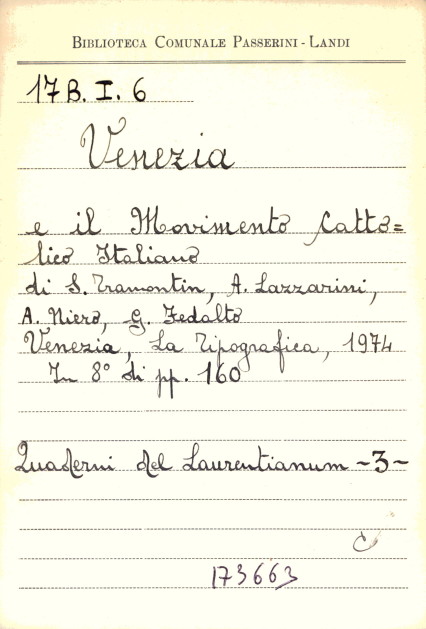 BIBLIOTECA COMUNALE PASSERINI - LANDI
17 B. I. 6
Venezia
e il Movimento Catto=
lico Italiano
di S. Tramontin, A. Lazzarini,
A. Niero, G. Fedalto
Venezia, La Tipografica, 1974
In 8° di pp. 160
Quaderni del Laurentianum -3-
173663